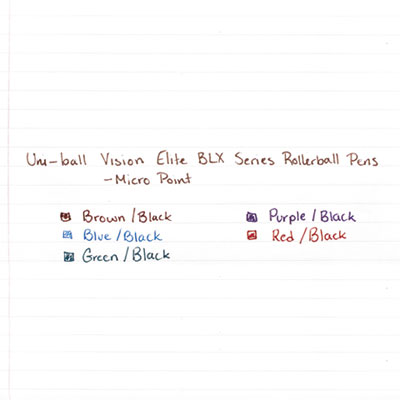 Uni-ball Vision Elite BLX Series Rollerball Pens
-Micro Point
Brown/Black
Blue/Black
Green/Black
Purple/Black
Red/Black